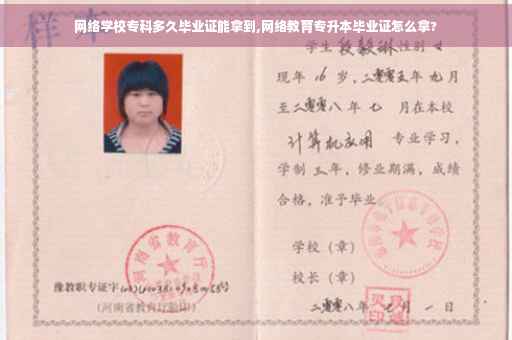 网络学校专科多久毕业证能拿到,网络教育专升本毕业证怎么拿?
样本
学生 段毅琳 性别 女
现年 16 岁,二零零五年 九月
至二零零八年 七 月在本校
计算机应用 专业学习,
学制 三 年,修业期满,成绩
合格,准予毕业
学校(章)
校长(章)
河南省教育厅
豫教职专证字
(河南省教育厅验印)
二零零八年 七 月 一 日